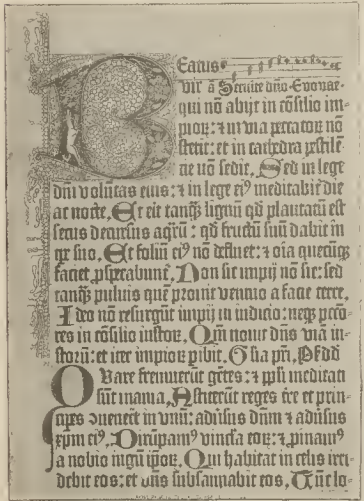 Beatus
vir ã Seruite dño. Euouae.
qui nõ abijt in cõsilio im-
pioꝝ: ⁊ in via peccatoꝝ nõ
stetit: et in cathedra pestilẽ-
tie nõ sedit. Sed in lege
dñi volũtas eius: ⁊ in lege eiꝰ meditabit̃ die
ac nocte. Et erit tanqꝫ lignũ qd̃ plantatũ est
secus decursus aqꝛũ: qd̃ fructũ suũ dabit in
tp̃e suo. Et foliũ eiꝰ nõ defluet: ⁊ oĩa quecũqꝫ
faciet ꝓsperabunt̃. Non sic impij nõ sic: sed
tanqꝫ puluis quẽ proicit ventus a facie terre.
Ideo nõ resurgũt impij in iudicio: neqꝫ pcc̃o-
res in cõsilio iustoꝝ. Qm̃ nouit dñs viã iu-
stoꝝũ: et iter impioꝝ ꝑibit. Gl̃ia pr̃i.
Quare fremuerũt gẽtes: ⁊ ppl̃i meditati
sũt inania. Astiterũt reges t̃re et prin-
cipes ꝯuenert̃ in vnũ: aduersus dñm ⁊ aduersus
xp̃m eiꝰ. Dirũpamꝰ vincl̃a eoꝝ: ⁊ ꝓijciamꝰ
a nobis iugũ ip̃oꝝ. Qui habitat in celis irri-
debit eos: et dñs subsannabit eos. Tũc lo-